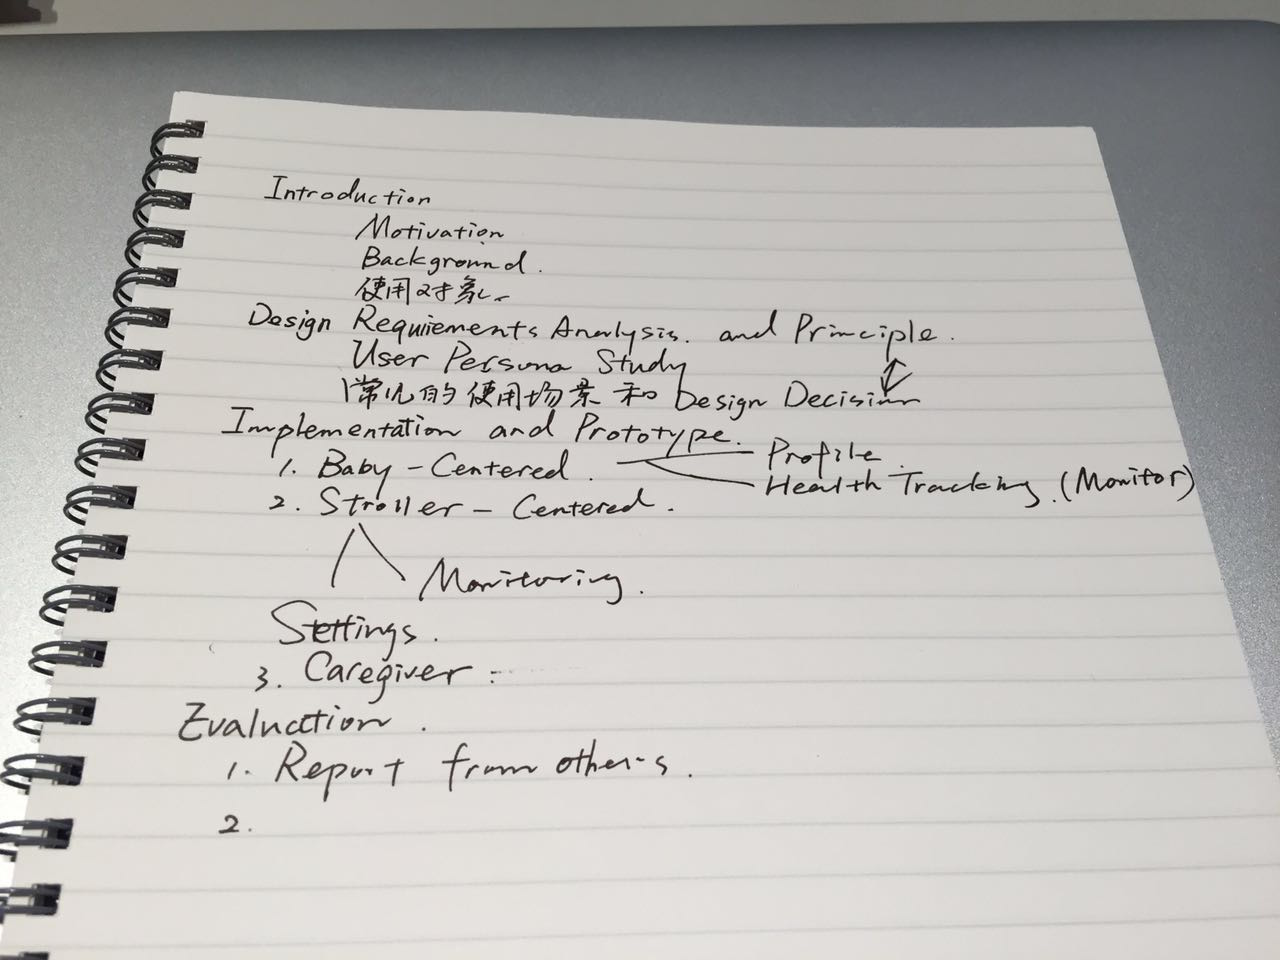 Introduction
Motivation
Background.
使用对象
Design Requiements Analysis. and Principle.
User Persona Study
常见的使用场景和 Design Decision
Implementation and Prototype.
1. Baby-Centered. Profile.
Health Tracking. (Monitor)
2. Stroller-Centered.
Monitoring.
Settings.
3. Caregiver:
Evaluation.
1. Report from others.
2.